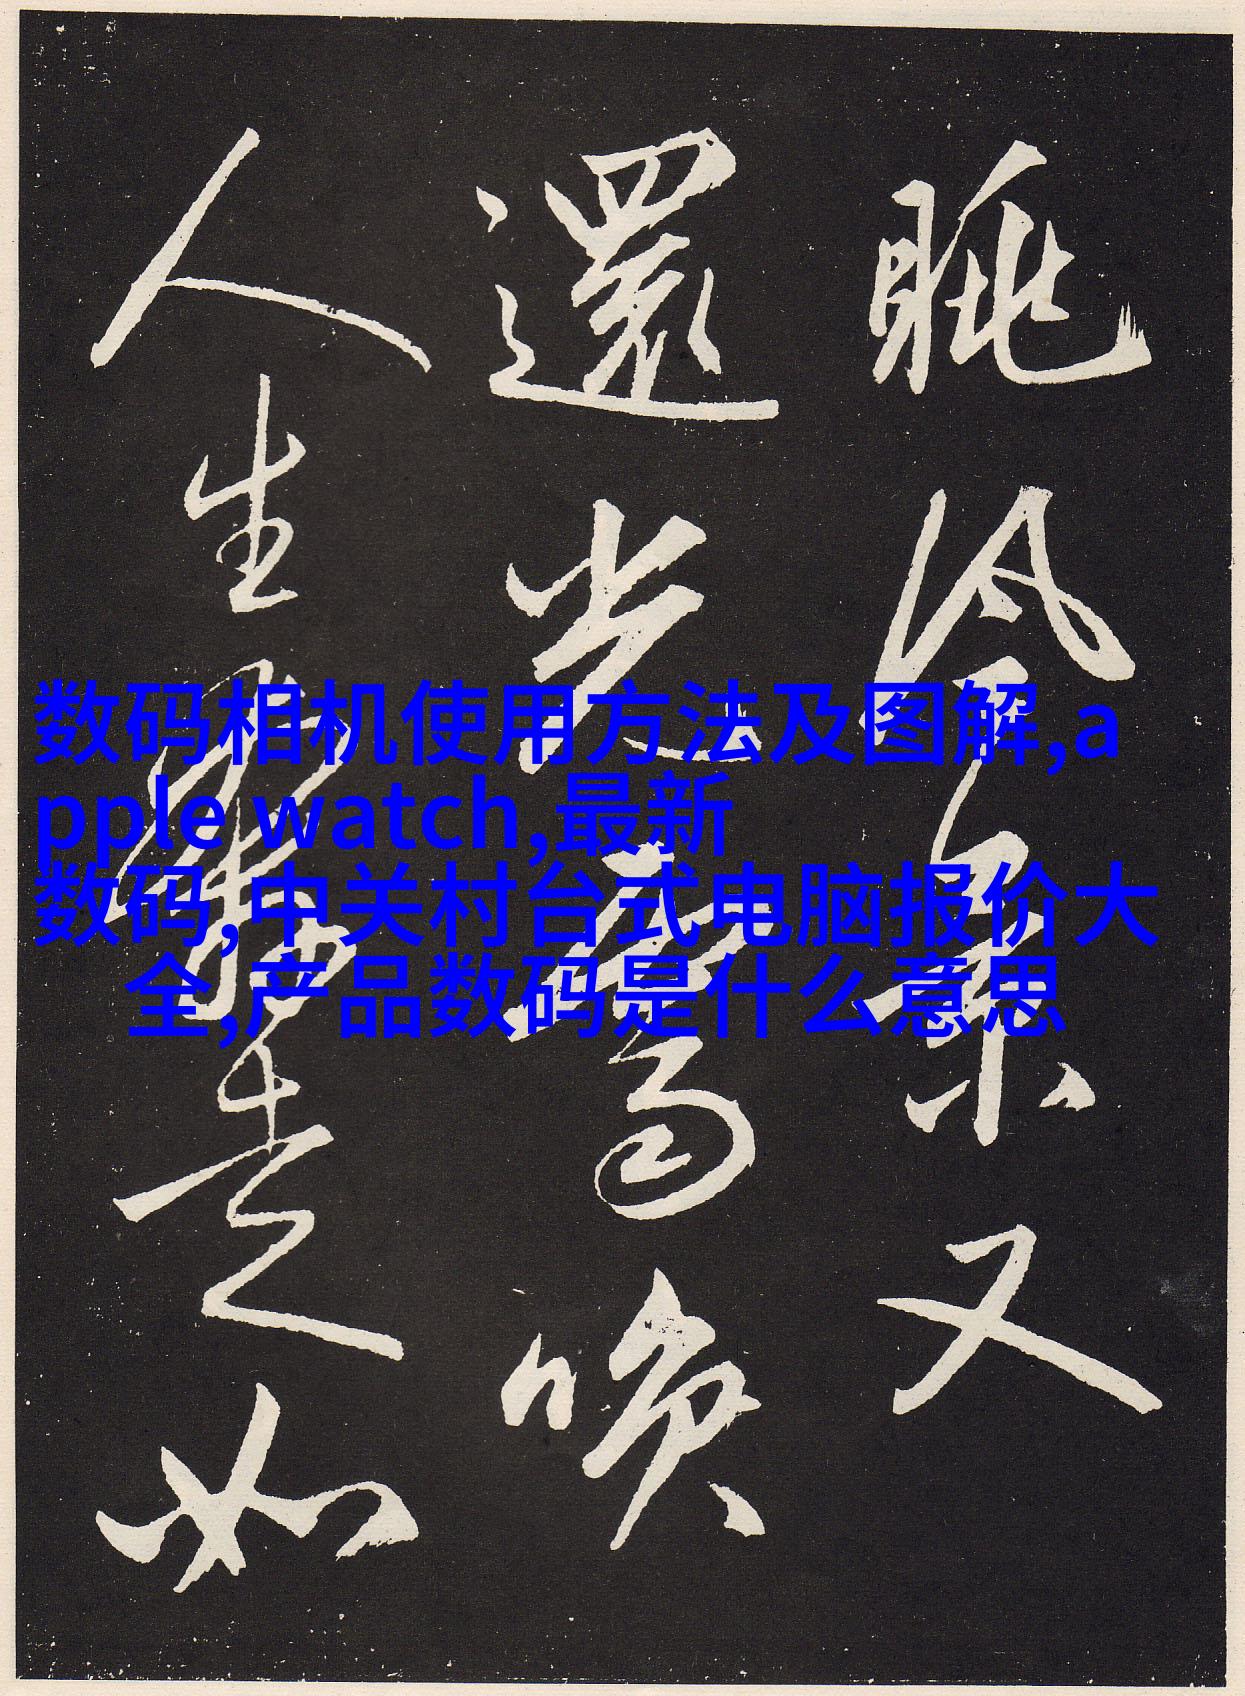 眺泉又
還喚
人生如
数码相机使用方法及图解,a
pple watch,最新
数码,中关村台式电脑报价大
全,产品数码是什么意思